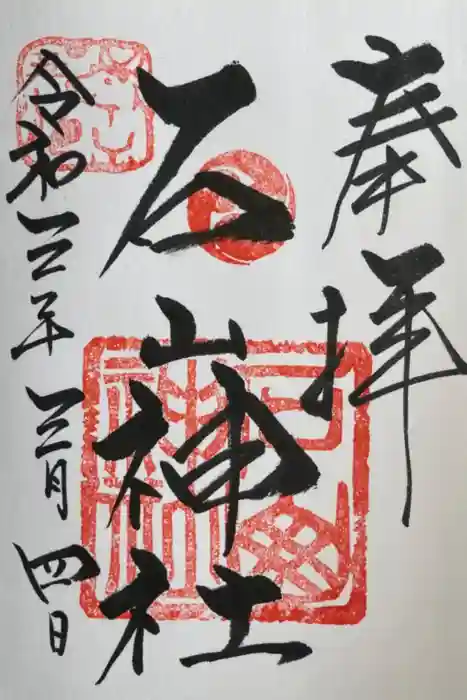 奉拝
石山神社
令和三年三月四日